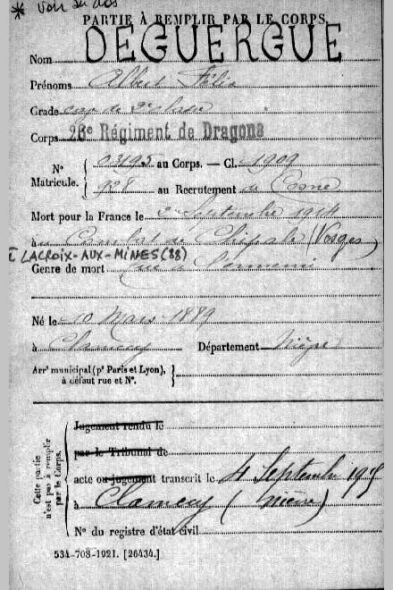 * Voir au dos
PARTIE À REMPLIR PAR LE CORPS.
Nom DEGUERGUE
Prénoms Albert Félix
Grade cav de 2e classe
Corps 26e Régiment de Dragons
N° Matricule. { 03195 au Corps. — Cl. 1909
928 au Recrutement de Cosne
Mort pour la France le 2 Septembre 1914
au Combat de (Vosges)
LACROIX-AUX-MINES (88)
Genre de mort Tué à l'ennemi
Né le 10 Mars 1889
à Clamecy Département Nièvre
Arrt municipal (pr Paris et Lyon), }
à défaut rue et N°.
Cette partie n'est pas à remplir par le Corps.
Jugement rendu le
par le Tribunal de
acte ou jugement transcrit le 4 Septembre 1915
à Clamecy (Nièvre)
N° du registre d'état civil
534-708-1921. [26434.]